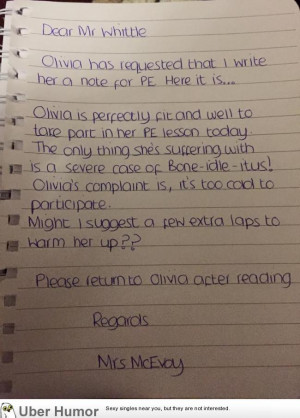 Dear Mr Whittle
Olivia has requested that I write
her a note for PE Here it is...
Olivia is perfectly fit and well to
take part in her PE lesson today.
The only thing she's suffering with
is a severe case of Bone-idle-itus!
Olivia's complaint is, it's too cold to
participate.
Might I suggest a few extra laps to
warm her up??
Please return to Olivia after reading
Regards
Mrs McEvoy
Uber Humor
Sexy singles near you, but they are not interested.